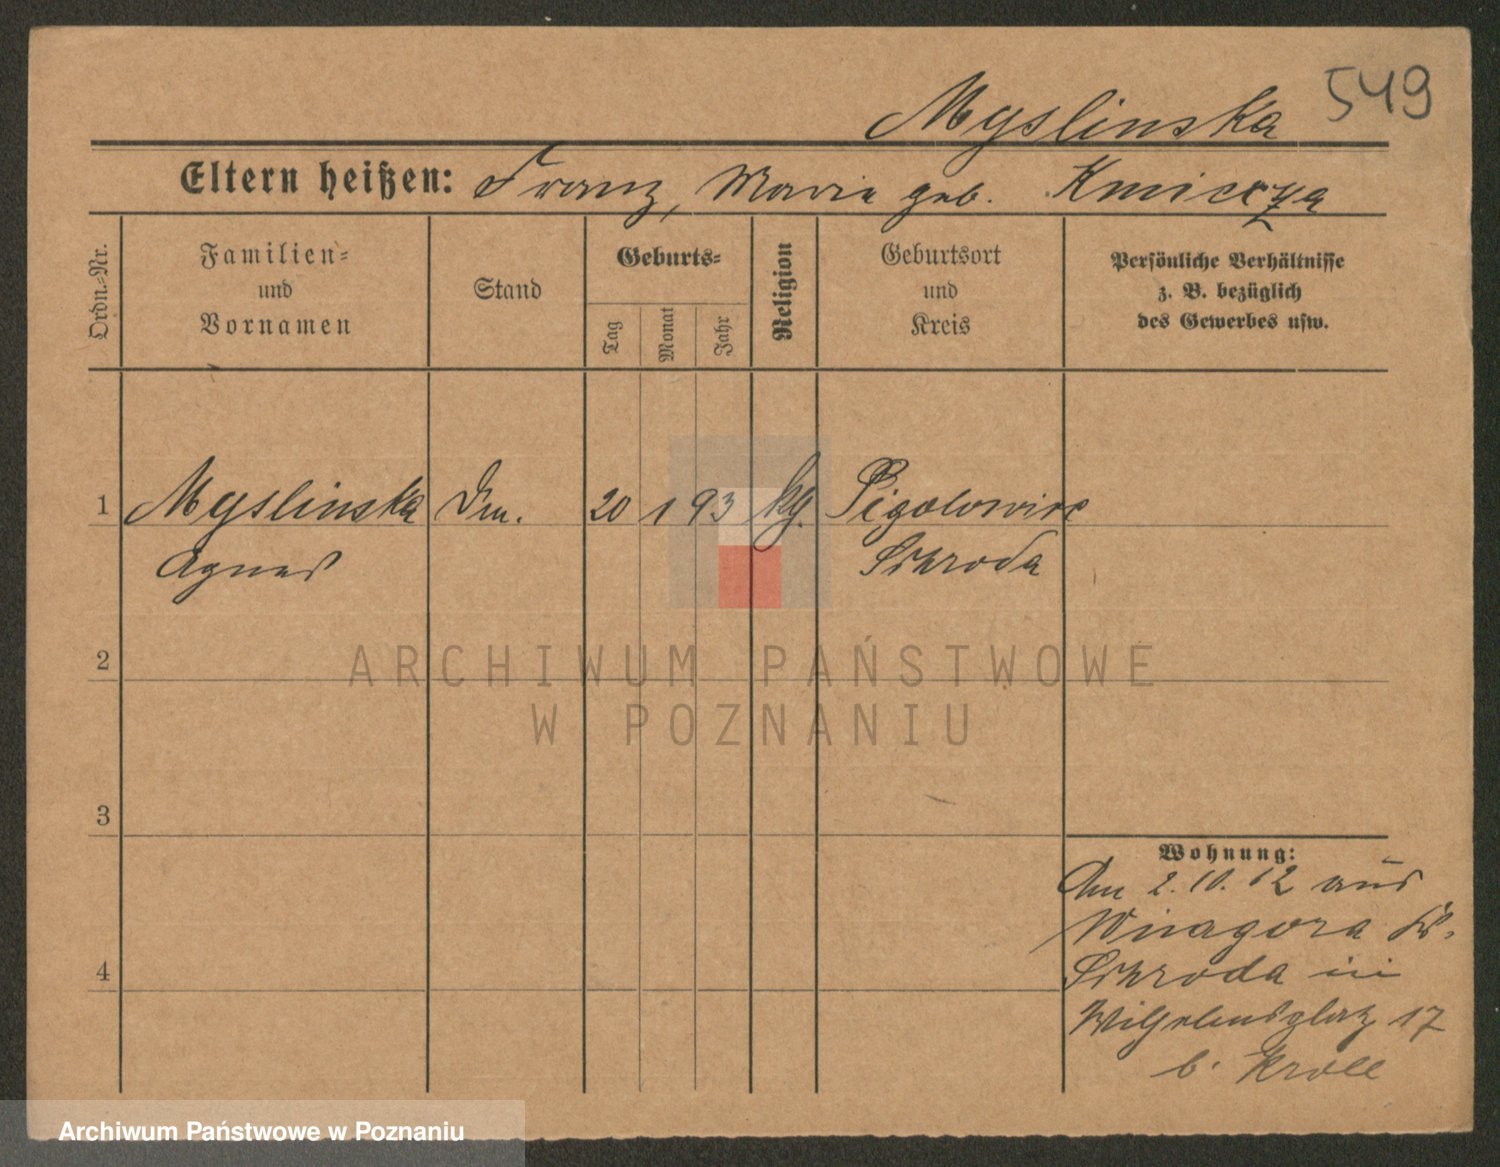 Myslinska 549
Eltern heißen: Franz, Marie geb. Kmiecza
Ordn.-Nr.
Familien-
und
Vornamen
Stand
Geburts-
Tag
Monat
Jahr
Religion
Geburtsort
und
Kreis
Persönliche Verhältnisse
z. B. bezüglich
des Gewerbes usw.
1 Myslinska 20 1 93 Pigolowice
Agnes Schroda
2
3
4
Wohnung:
Am 2.10.12 aus
Winagora Kr.
Schroda in
Wilhelmsplatz 17
b. Kroll
ARCHIWUM PAŃSTWOWE
W POZNANIU
Archiwum Państwowe w Poznaniu